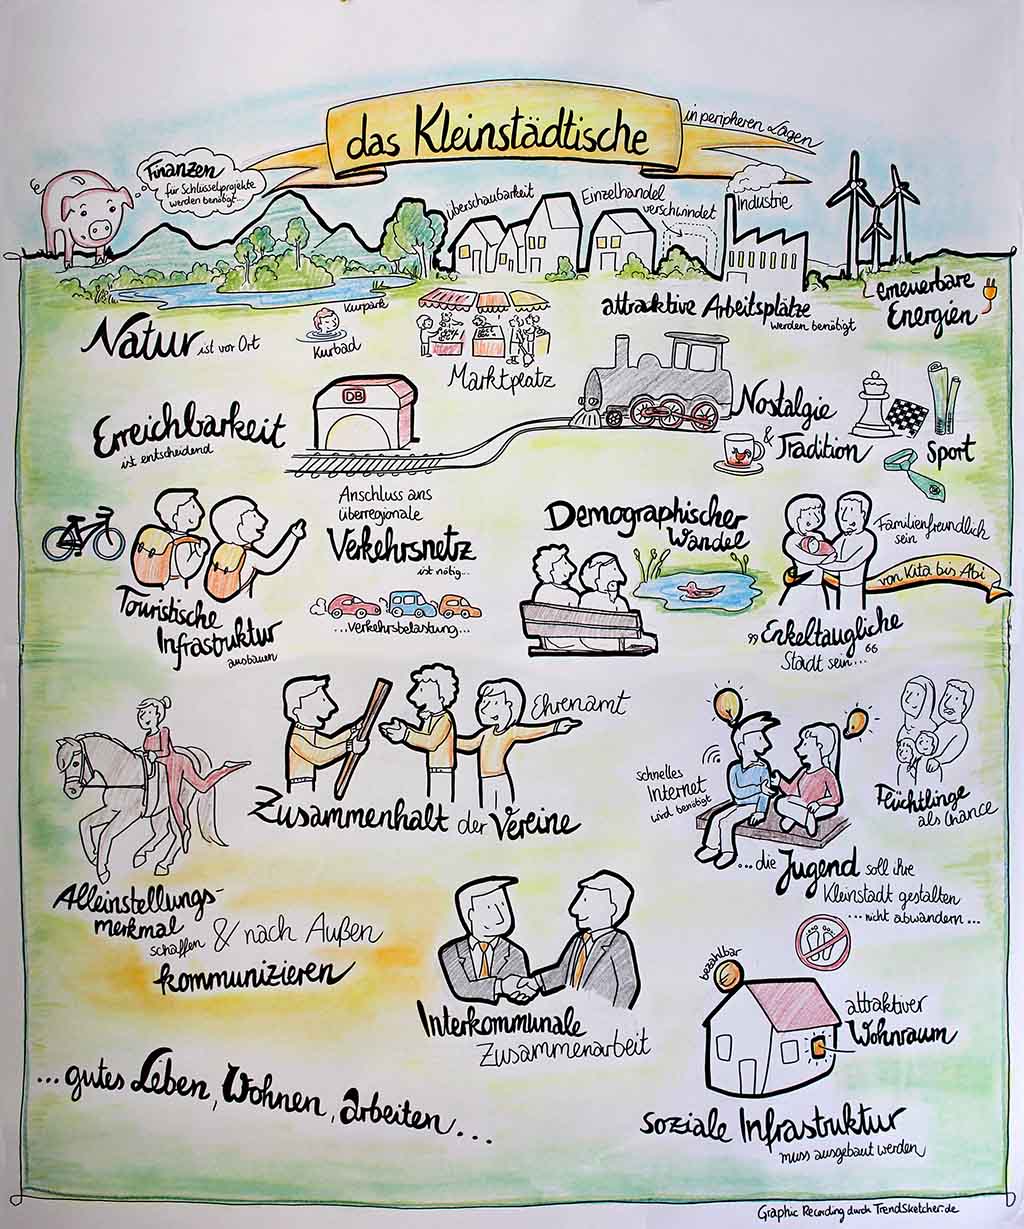 das Kleinstädtische
in peripheren Lagen
Finanzen
für Schlüsselprojekte
werden benötigt...
Überschaubarkeit
Einzelhandel
verschwindet
Industrie
erneuerbare
Energien
Natur ist vor Ort
Kurpark
Kurbad
Marktplatz
attraktive Arbeitsplätze
werden benötigt
Erreichbarkeit
ist entscheidend
DB
Nostalgie
& Tradition
Sport
Anschluss ans
überregionale
Verkehrsnetz
ist nötig...
...Verkehrsbelastung...
Touristische
Infrastruktur
ausbauen
Demographischer
Wandel
Familienfreundlich
sein
von Kita bis Abi
„Enkeltaugliche
Stadt sein...“
Ehrenamt
Zusammenhalt der Vereine
schnelles
Internet
wird benötigt
Flüchtlinge
als Chance
...die Jugend soll ihre
Kleinstadt gestalten
...nicht abwandern...
Alleinstellungs-
merkmal
schaffen & nach Außen
kommunizieren
Interkommunale
Zusammenarbeit
bezahlbar
attraktiver
Wohnraum
soziale Infrastruktur
muss ausgebaut werden
...gutes Leben, Wohnen, arbeiten...
Graphic Recording durch TrendSketcher.de